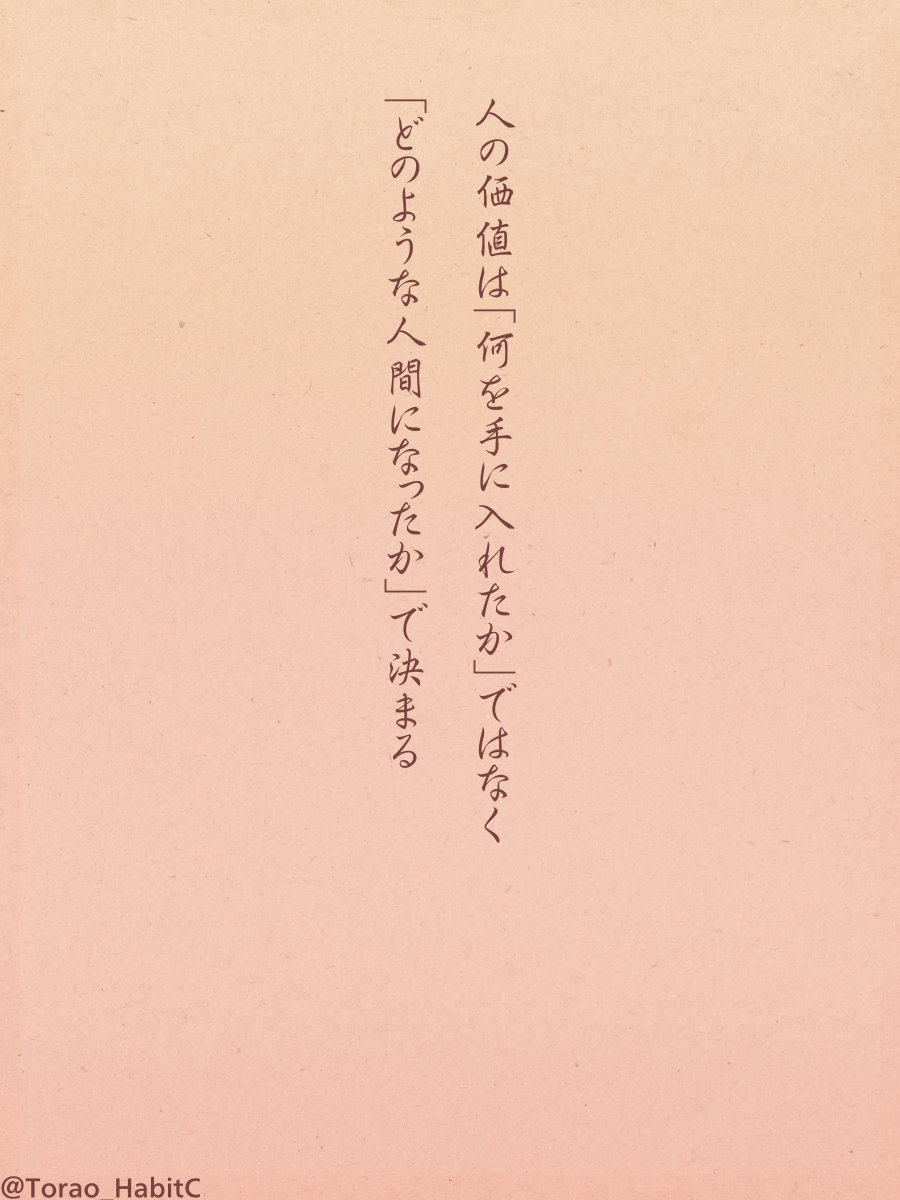 人の価値は「何を手に入れたか」ではなく
「どのような人間になったか」で決まる
@Torao_HabitC